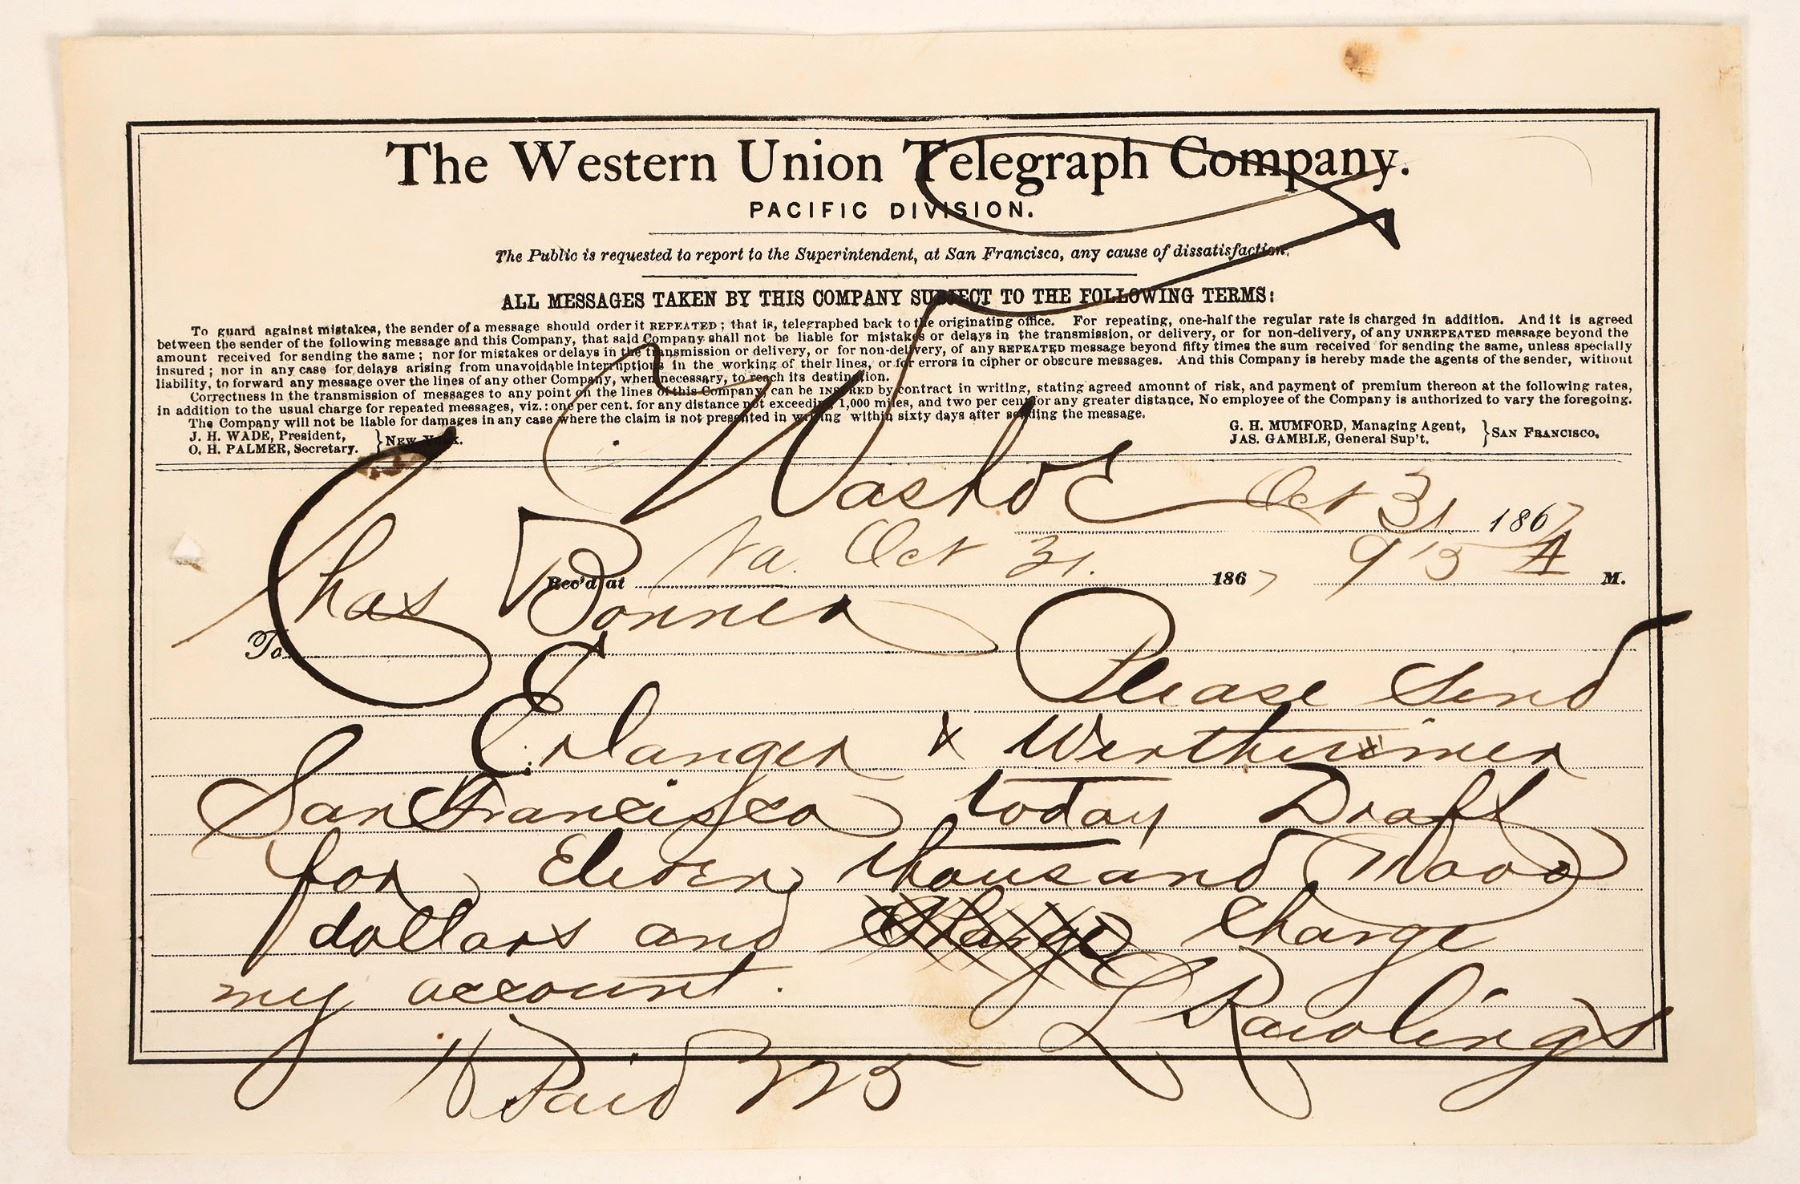 The Western Union Telegraph Company.
PACIFIC DIVISION.
The Public is requested to report to the Superintendent, at San Francisco, any cause of dissatisfaction.
ALL MESSAGES TAKEN BY THIS COMPANY SUBJECT TO THE FOLLOWING TERMS:
To guard against mistakes, the sender of a message should order it REPEATED; that is, telegraphed back to the originating office. For repeating, one-half the regular rate is charged in addition. And it is agreed
between the sender of the following message and this Company, that said Company shall not be liable for mistakes or delays in the transmission, or delivery, or for non-delivery, of any UNREPEATED message beyond the
amount received for sending the same; nor for mistakes or delays in the transmission or delivery, or for non-delivery, of any REPEATED message beyond fifty times the sum received for sending the same, unless specially
insured; nor in any case for delays arising from unavoidable interruptions in the working of their lines, or for errors in cipher or obscure messages. And this Company is hereby made the agents of the sender, without
liability, to forward any message over the lines of any other Company, when necessary, to reach its destination.
Correctness in the transmission of messages to any point on the lines of this Company, can be INSURED by contract in writing, stating agreed amount of risk, and payment of premium thereon at the following rates,
in addition to the usual charge for repeated messages, viz.: one per cent. for any distance not exceeding 1,000 miles, and two per cent for any greater distance, No employee of the Company is authorized to vary the foregoing.
The Company will not be liable for damages in any case where the claim is not presented in writing within sixty days after sending the message.
J. H. WADE, President, } NEW YORK.
O. H. PALMER, Secretary.
G. H. MUMFORD, Managing Agent, } SAN FRANCISCO.
JAS. GAMBLE, General Sup't.
Washoe Oct 31 1867
Rec'd at Va. Oct 31. 1867 915 A M.
To Chas Bonner
Please Send
Erlanger & Wertheimer
San Francisco today Draft
for Eleven thousand 11000
dollars and Charge Charge
my account.
L Rawlings
Paid 225